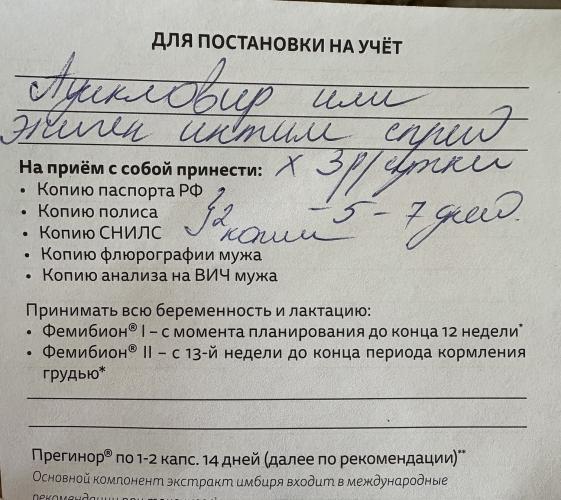 ДЛЯ ПОСТАНОВКИ НА УЧЁТ
Ацикловир или
эпиген интим спрей
х 3 р/сутки
На приём с собой принести:
• Копию паспорта РФ
• Копию полиса
2 копии
– 5 – 7 дней.
• Копию СНИЛС
• Копию флюрографии мужа
• Копию анализа на ВИЧ мужа
Принимать всю беременность и лактацию:
• Фемибион® I – с момента планирования до конца 12 недели*
• Фемибион® II – с 13-й недели до конца периода кормления
грудью*
Прегинор® по 1-2 капс. 14 дней (далее по рекомендации)**
Основной компонент экстракт имбиря входит в международные